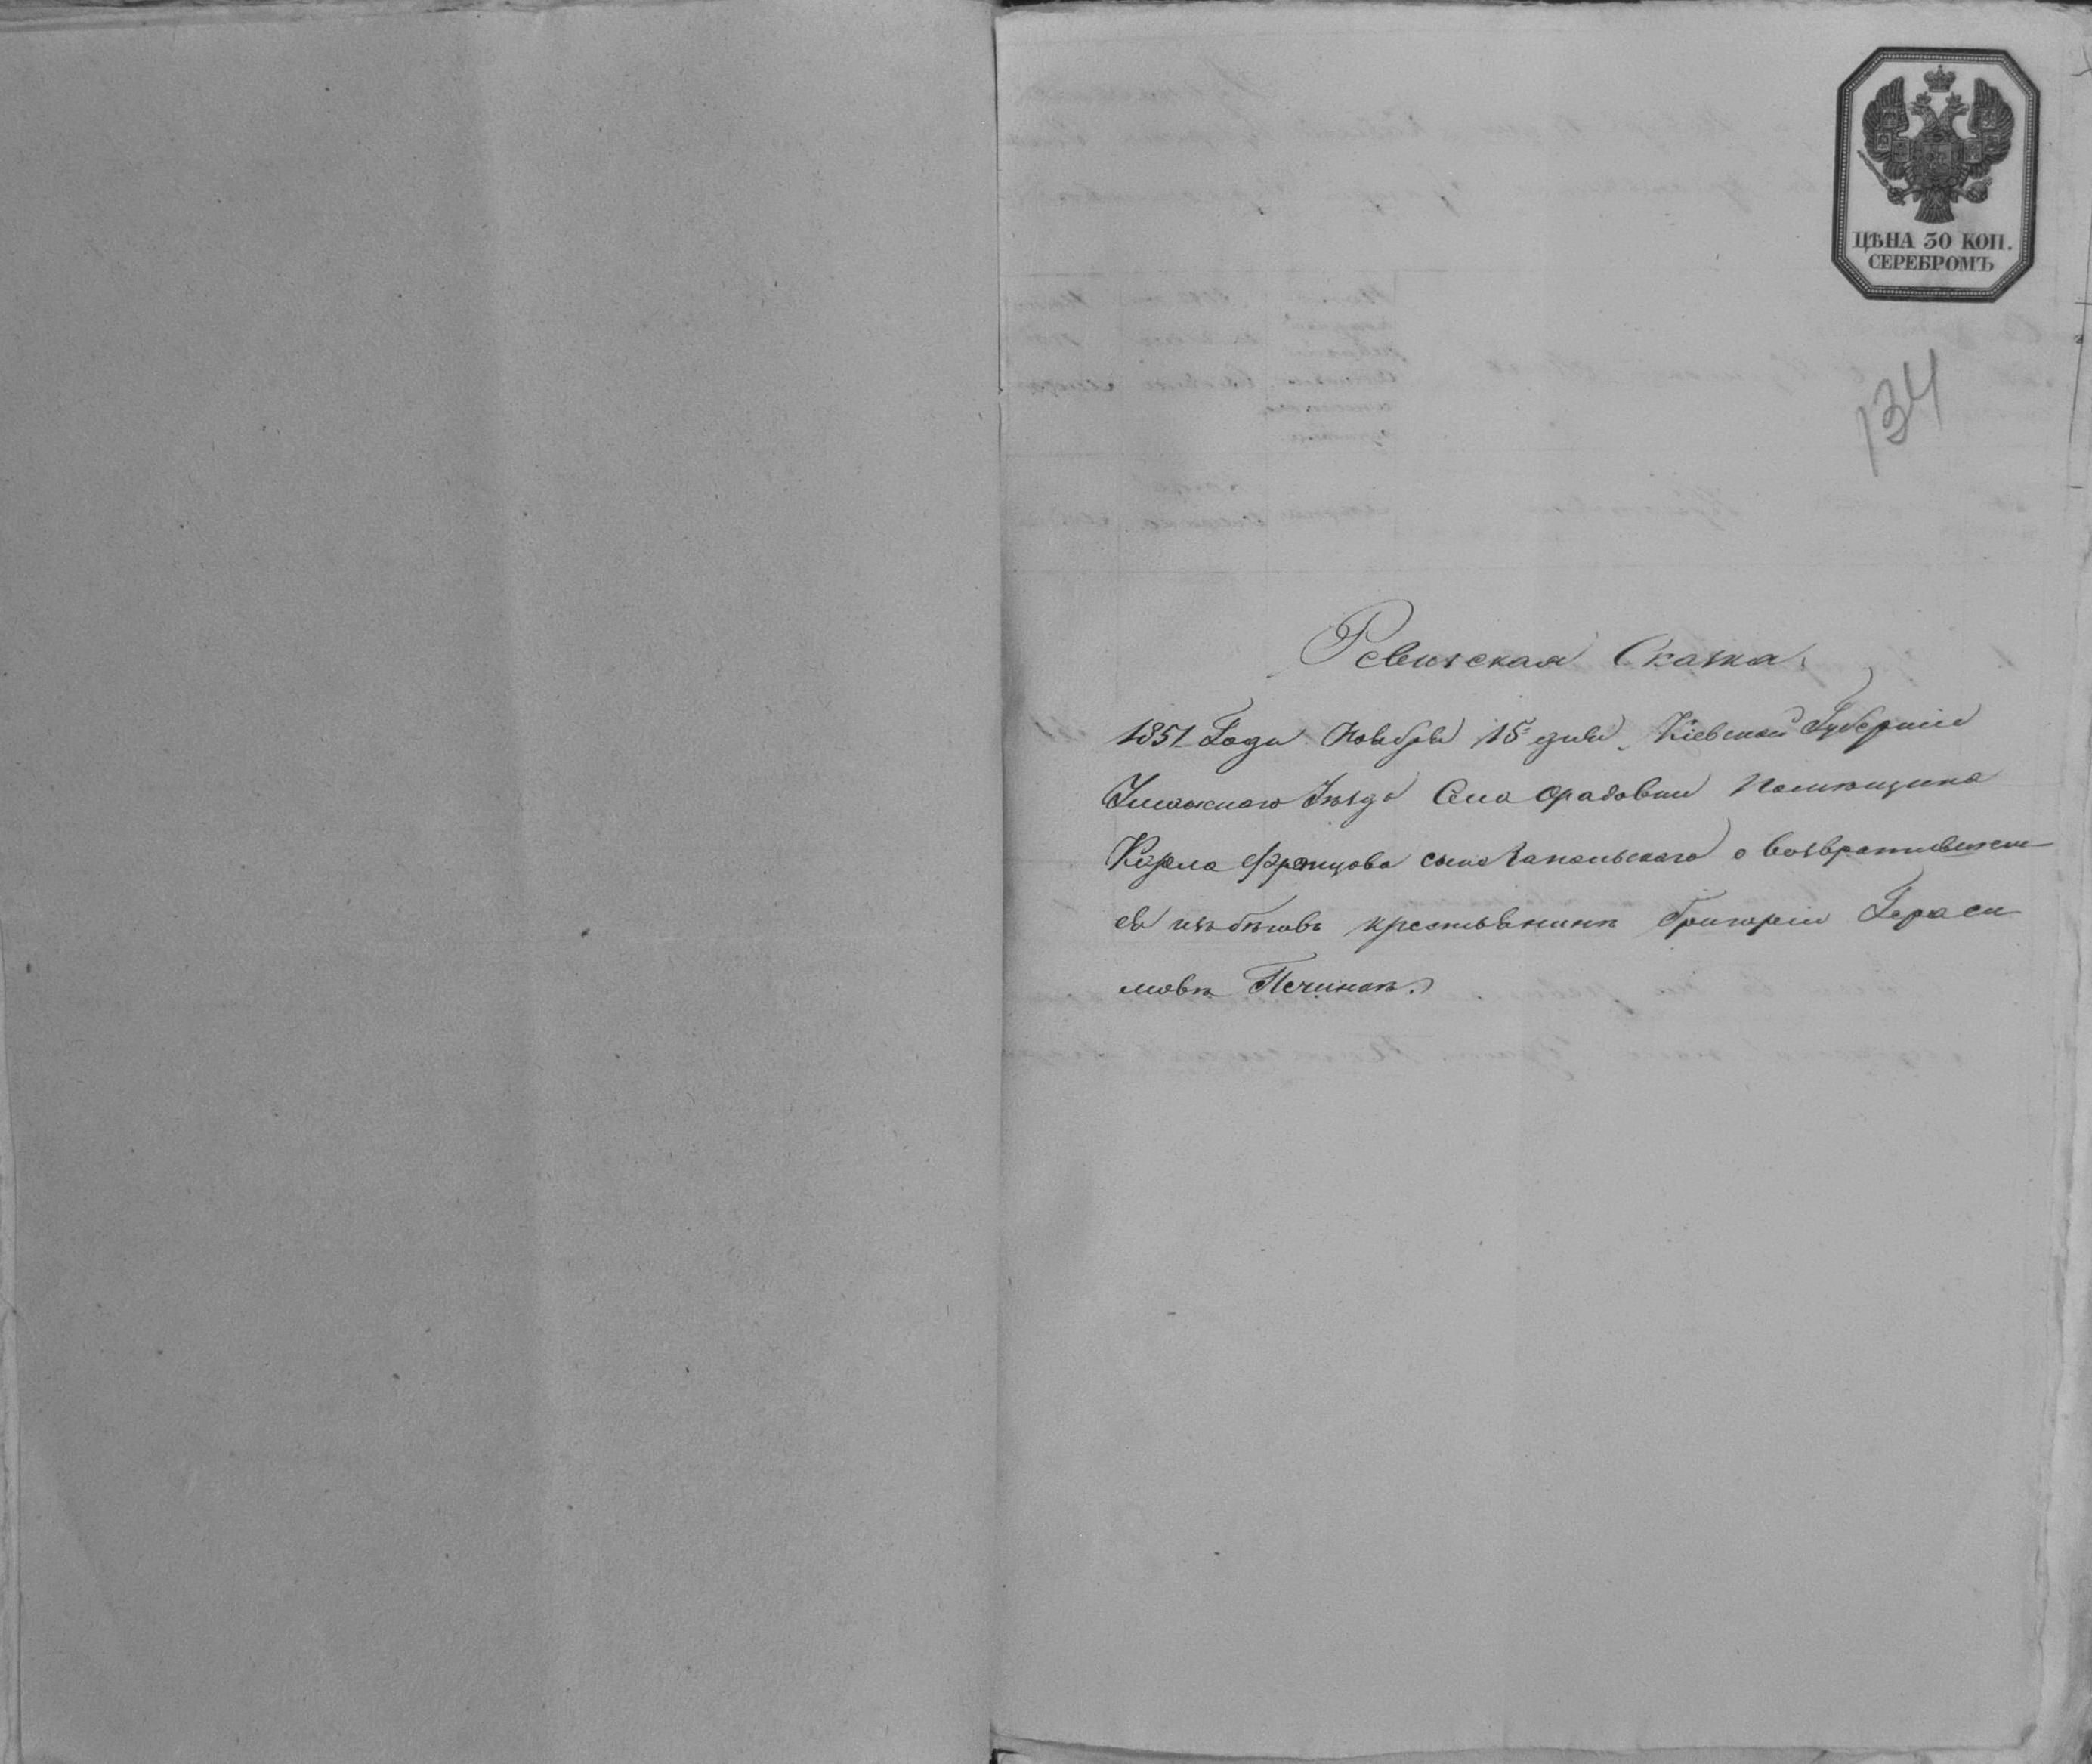 ЦѢНА 30 КОП.
СЕРЕБРОМЪ
134
Ревизская Сказка
1851 Года Ноября 15 дня Кіевской Губерніи
Уманскаго Уѣзда Села Орадовки Помѣщика
Карла Францова сына Запольскаго о возвратившем
ся изъ бѣговъ крестьянинѣ Григоріи Гераси
мовѣ Печинкѣ.